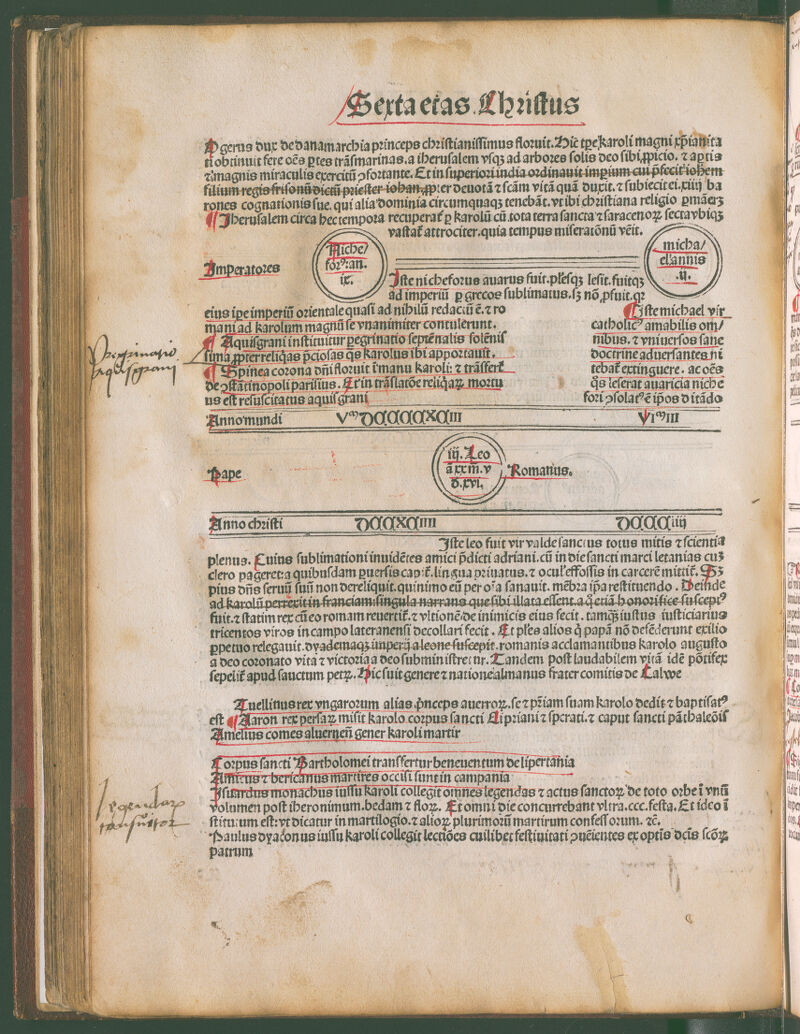 Sexta etas. Christus
Ogerus dux de danamarchia princeps christianissimus floruit. Hic tꝑe karoli magni xp̄ianita
ti obtinuit fere oēs ꝑtes trāſmarinas. a iheruſalem vſqꝫ ad arbores ſolis deo ſibi ꝓpicio. ⁊ aꝑtis
⁊ magnis miraculis exercitū ꝯfortante. Et in ſuperiori india ordinauit imꝑium cui p̄fecit iohem
filium regis friſonū dictū prieſter iohan, ꝓpter deuotā ⁊ ſcām vitā quā duxit. ⁊ ſubiecit ei. xiiij ba
rones cognationis ſue. qui alia dominia circumquaqꝫ tenebāt. vt ibi chriſtiana religio ꝑmaērꝫ
¶ Iheruſalem circa hec tempora recuperat̄ ꝑ karolū cū. tota terra ſancta ⁊ ſaracenoꝝ ſecta vbiqꝫ
vaſtat̄ attrociter. quia tempus miſeratōnū vēit.
Imperatores
Niche/
forꝰ: an.
ix.
micha/
el: annis
.ij.
Iſte nicheforus auarus fuit. pl̄eſqꝫ leſit. fuitqꝫ
ad imperiū ꝑ grecos ſublimatus. ſꝫ nō ꝓfuit. qꝛ
eius ip̄e imperiū orientale quaſi ad nihilū redactū ē. ⁊ ro
mani ad karolum magnū ſe vnanimiter contulerunt.
¶ Aquiſgrani inſtituitur ꝑegrinatio ſeptēnalis ſolēniſ
ſima ꝓpter reliq̄as p̄cioſas q̄s karolus ibi apportauit.
¶ Spinea corona dn̄i floruit ī manu karoli: ⁊ trāſfert̄
de ꝯſtātinopoli pariſius. Et in trāſlatōe reliq̄aꝝ mortu
us eſt reſuſcitatus aquiſgrani
¶ Iſte michael vir
catholicꝰ amabilis om/
nibus. ⁊ vniuerſos ſane
doctrine aduerſantes ni
tebat̄ extinguere. ac oēs
q̄s leſerat auaricia niche
fori ꝯſolatꝰ ē ip̄os ditādo
Peregrinatio
Aquiſgrani
Anno mundi
Pape
iij. Leo
ā xx m. v
d. xvi.
Romanus.
Anno chriſti
Iſte leo fuit vir valde ſanctus totus mitis ⁊ ſcientia
plenus. Cuius ſublimationi inuidētes amici p̄dicti adriani. cū in die ſancti marci letanias cuꝫ
clero ꝑageret: a quibuſdam ꝑuerſis capit̄. lingua priuatus. ⁊ ocul̓ effoſſis in carcerē mittit̄. Sꝫ
pius dn̄s ſeruū ſuū non dereliquit. quinimo eū per oīa ſanauit. mēbra ip̄a reſtituendo. Deinde
ad karolū perrexit in franciam. ſingula narrans que ſibi illata eſſent. a q̄ etiā honorifice ſuſceptꝰ
fuit. ⁊ ſtatim rex cū eo romam reuertit̄. ⁊ vltionē de inimicis eius fecit. tamqꝫ iuſtus iuſticiarius
tricentos viros in campo lateranenſi decollari fecit. Et pl̄es alios q̄ papā nō defēderunt exilio
ꝑpetuo relegauit. dyademaqꝫ imperij a leone ſuſcepit. romanis acclamantibus karolo auguſto
a deo coronato vita ⁊ victoria a deo ſubminiſtretur. Tandem poſt laudabilem vitā idē pōtifex
ſepelit̄ apud ſanctum petꝝ. Hic fuit genere ⁊ natione almanus frater comitis de Calwe
Tuellinus rex vngarorum alias p̄nceps auerroꝝ. ſe ⁊ pr̄iam ſuam karolo dedit ⁊ baptiſatꝰ
eſt ¶ Aaron rex perſaꝝ miſit karolo corpus ſancti Cipriani ⁊ ſperati. ⁊ caput ſancti pāthaleōis
Amelius comes aluernen̄ gener karoli martir
Corpus ſancti Bartholomei tranſfertur beneuentum de lipertania
Amicus ⁊ bericanus martires occiſi ſunt in campania
Iſuardus monachus iuſſu karoli collegit omnes legendas ⁊ actus ſanctoꝝ de toto orbe ī vnū
volumen poſt iheronimum. bedam ⁊ floꝝ. Et omni die concurrebant vltra. ccc. feſta. Et ideo ī
ſtitutum eſt: vt dicatur in martilogio. ⁊ alioꝝ plurimorū martirum confeſſorum. ⁊c̄.
Paulus dyaconus iuſſu karoli collegit lectiōes cuilibet feſtiuitati ꝯuēientes ex optīs dc̄is ſcōꝝ
patrum